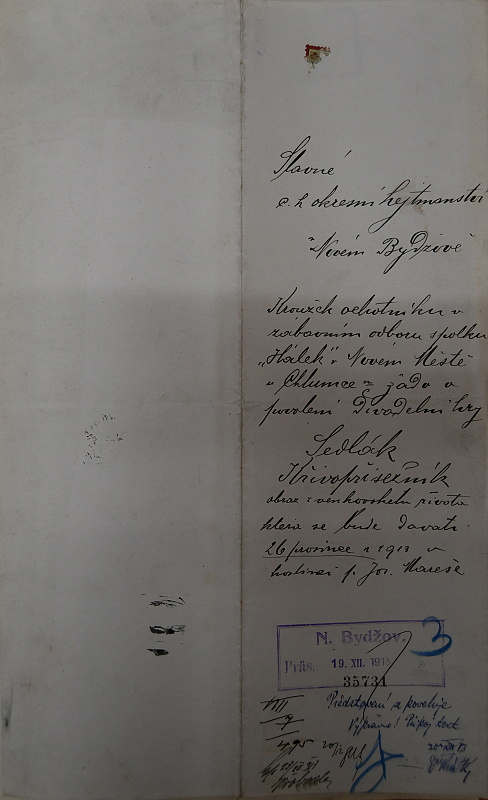 Slavné
c. k okresní hejtmanství
v Novém Bydžově
Kroužek ochotníku v
zábavním odboru spolku
„Hálek" v Novém Městě
u Chlumce n/C žádá o
povolení Divadelní hry
Sedlák
Křivopřísežník
obraz z venkovského života
která se bude davati
26 prosince r 1913 v
hostinci p. Jos. Mareše
3
N. Bydžov.
Präs. 19. XII. 1913
35731
VIII
7
Představení a povoluje
495
20/XII